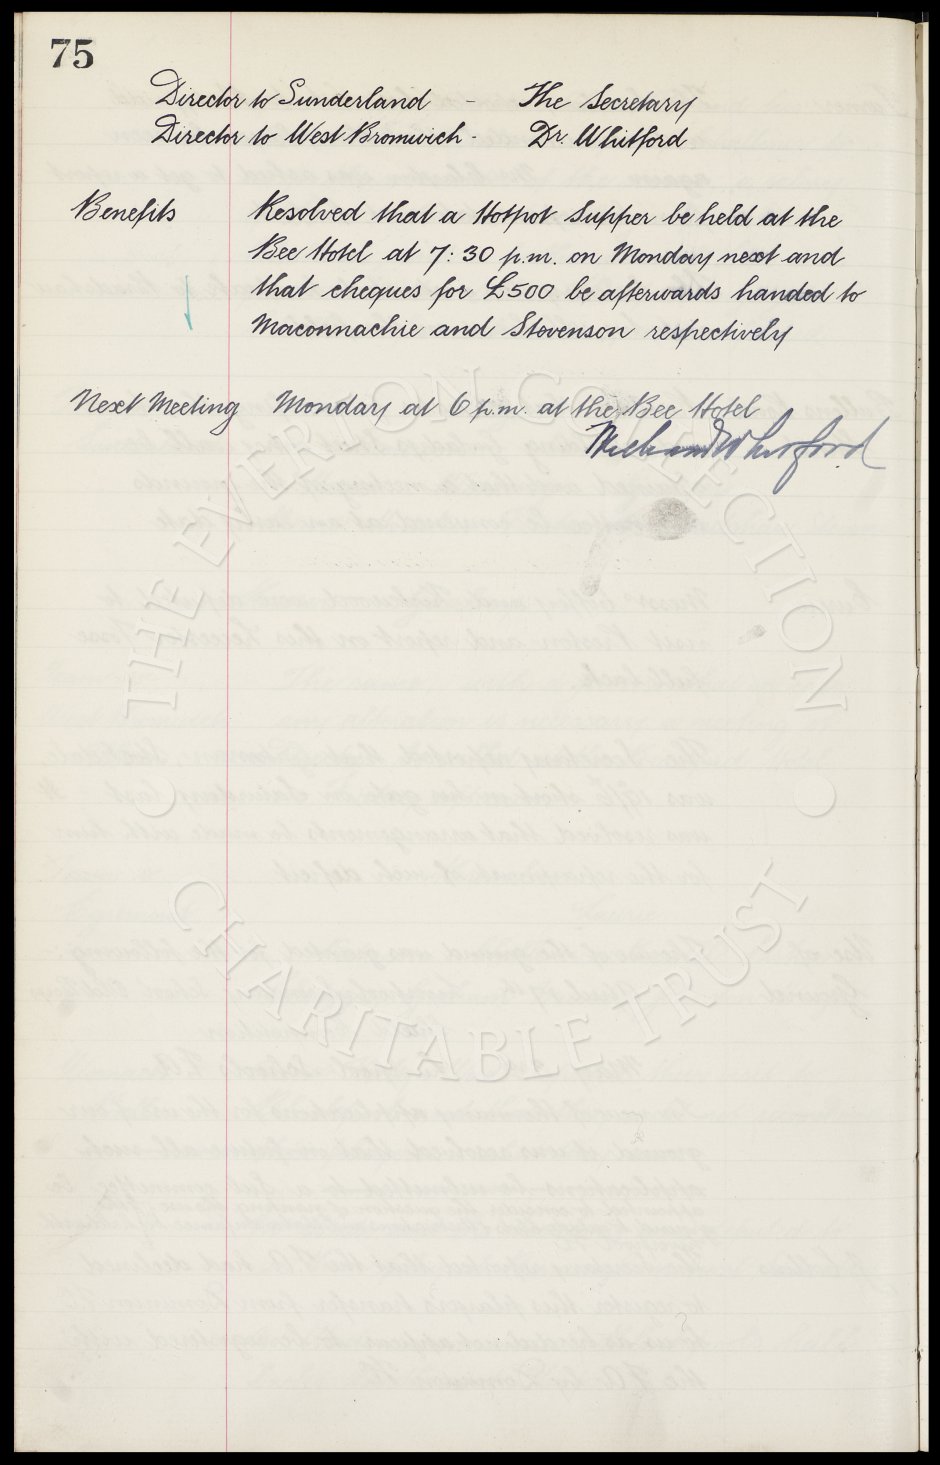 75
Director to Sunderland - The Secretary
Director to West Bromwich - Dr. Whitford
Benefits Resolved that a Hotpot Supper be held at the
Bee Hotel at 7:30 p.m. on Monday next and
that cheques for £500 be afterwards handed to
Maconnachie and Stevenson respectively
Next Meeting Monday at 6 p.m. at the Bee Hotel
Whitford
THE EVERTON COLLECTION
CHARITABLE TRUST